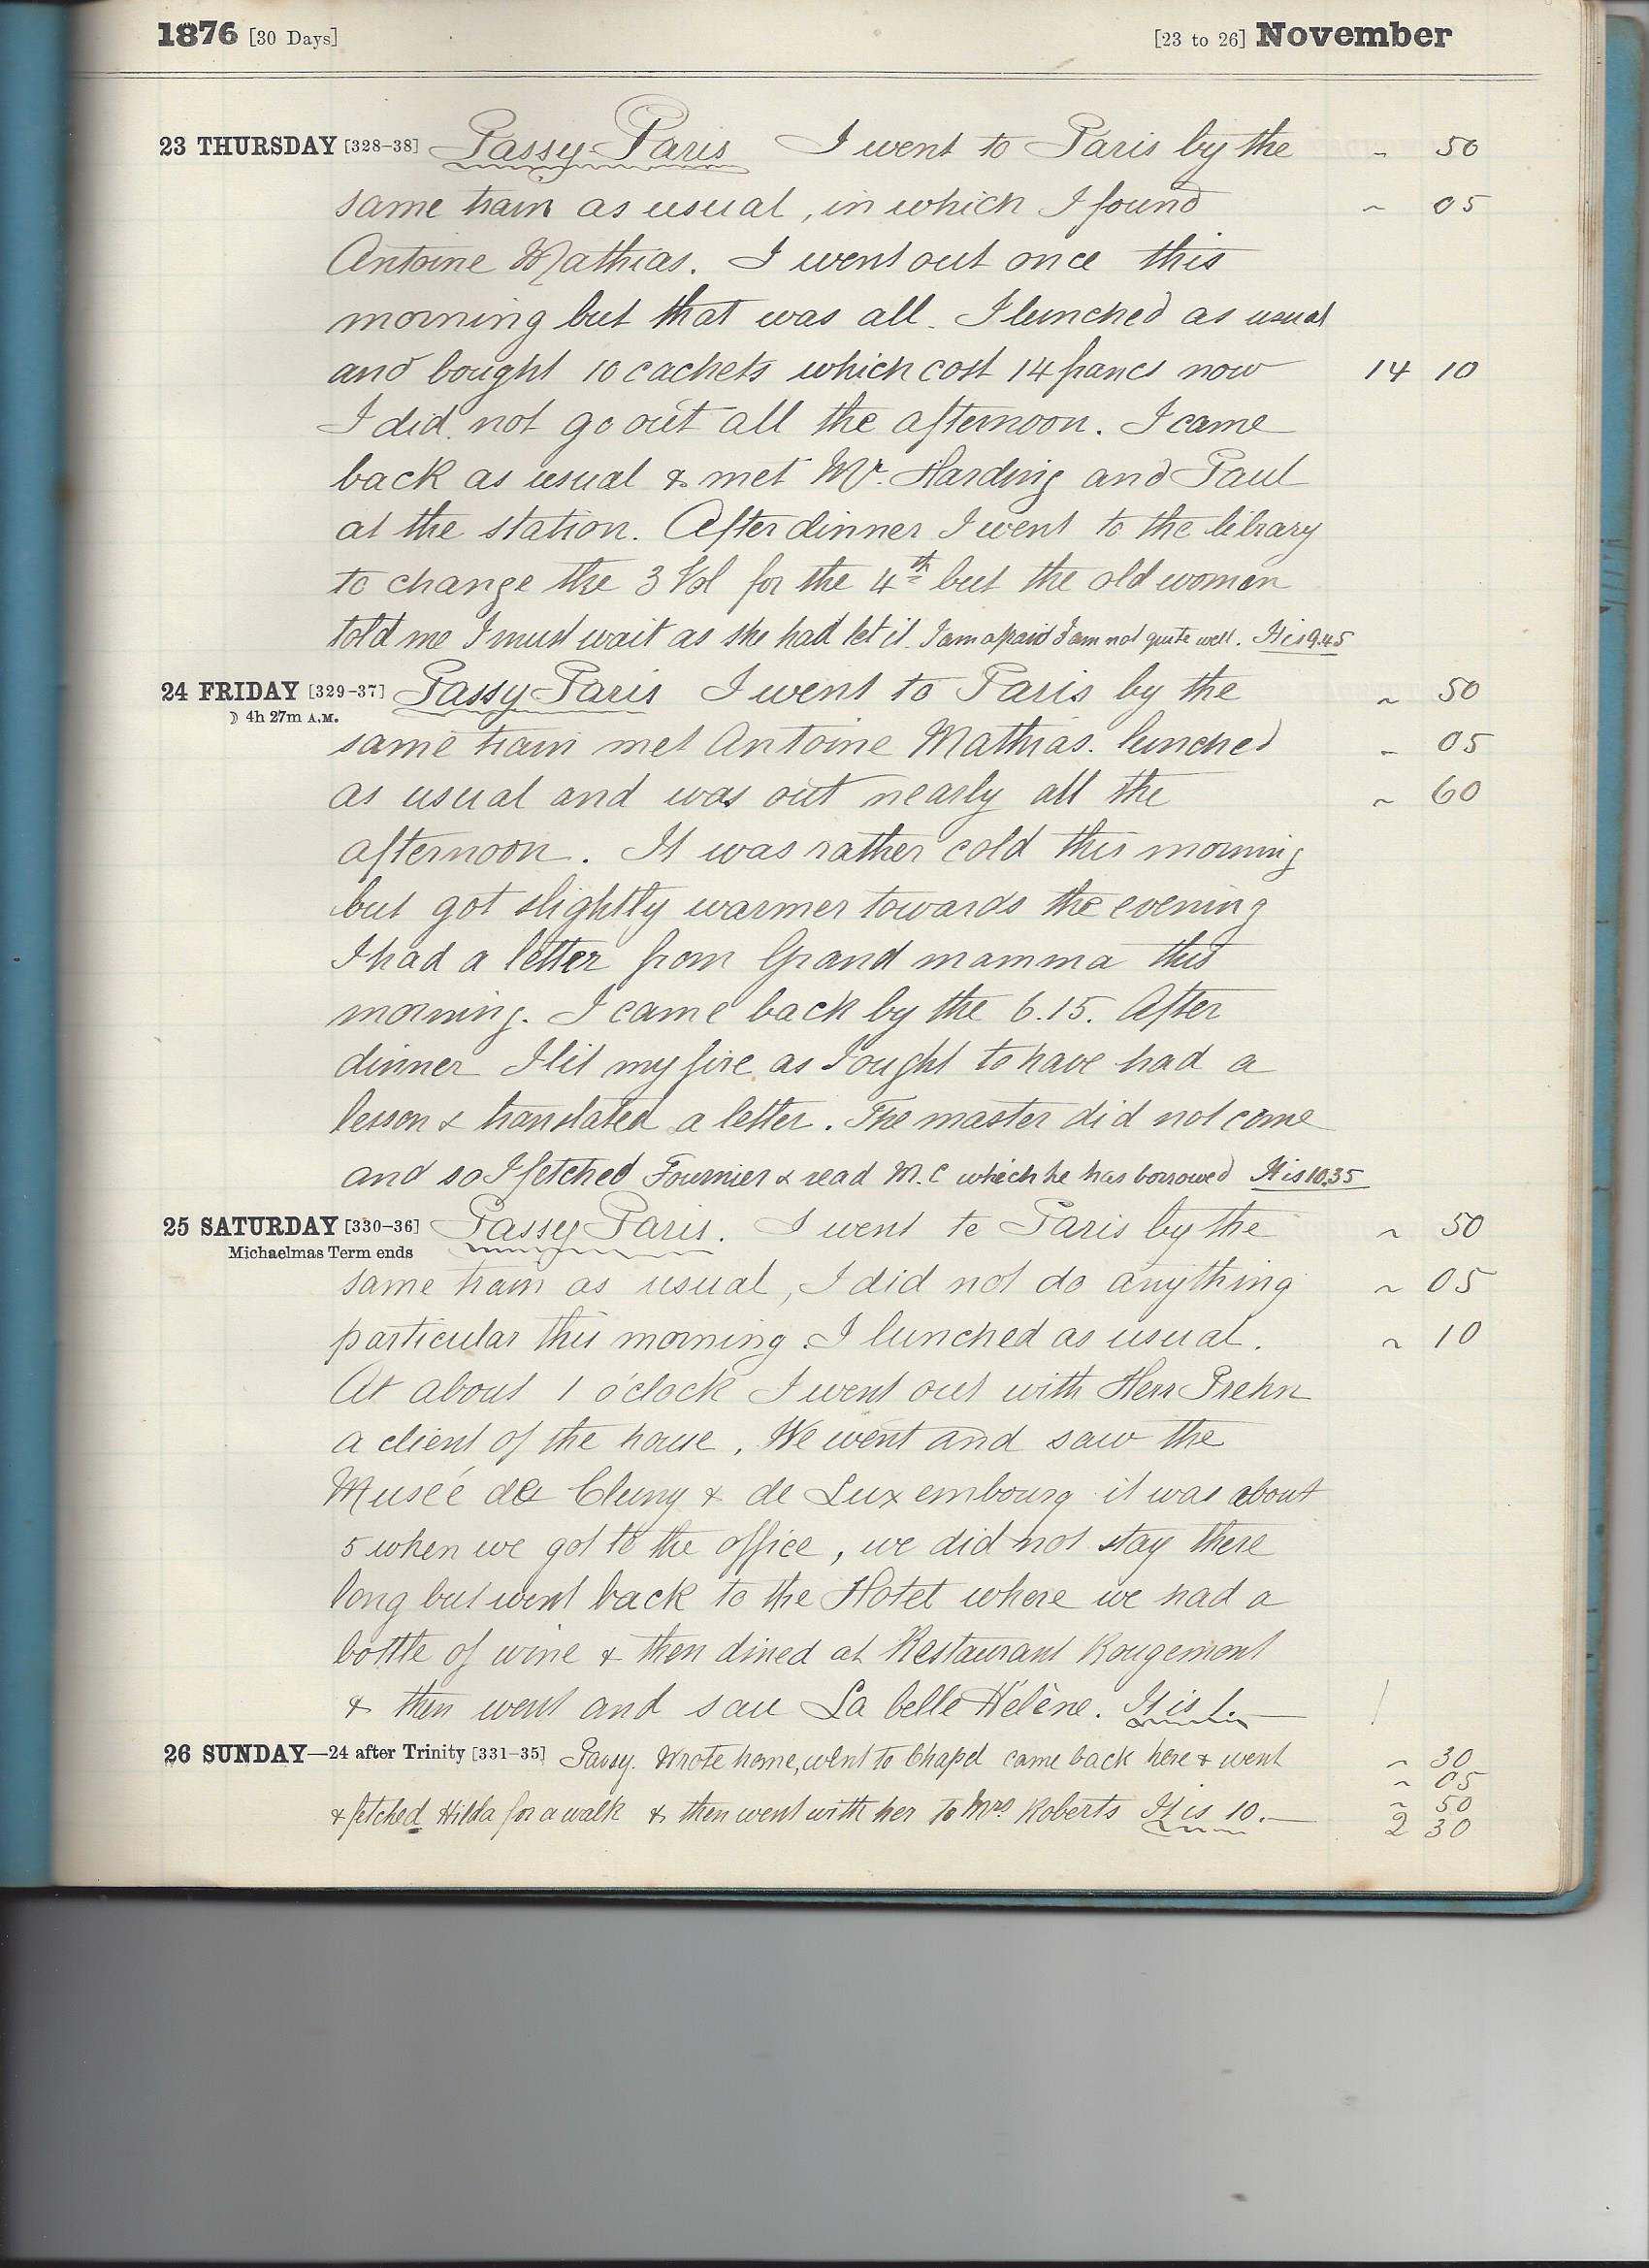 1876 [30 Days] [23 to 26] November
23 THURSDAY [328-38] Passy-Paris I went to Paris by the ~ 50
same train as usual, in which I found ~ 05
Antoine Mathias. I went out once this
morning but that was all. I lunched as usual
and bought 10 cachets which cost 14 francs now 14 10
I did not go out all the afternoon. I came
back as usual & met Mr. Harding and Paul
at the station. After dinner I went to the library
to change the 3 Vol for the 4th but the old woman
told me I must wait as she had let it. I am afraid I am not quite well. It is 9.45
24 FRIDAY [329-37] Passy-Paris I went to Paris by the ~ 50
☽ 4h 27m A.M.
same train met Antoine Mathias. lunched ~ 05
as usual and was out nearly all the ~ 60
afternoon. It was rather cold this morning
but got slightly warmer towards the evening
I had a letter from Grand mamma this
morning. I came back by the 6.15. After
dinner I lit my fire as I ought to have had a
lesson & translated a letter. The master did not come
and so I fetched Fournier & read M.C which he has borrowed It is 10.35
25 SATURDAY [330-36] Passy Paris. I went to Paris by the ~ 50
Michaelmas Term ends
same train as usual, I did not do anything ~ 05
particular this morning. I lunched as usual. ~ 10
At about 1 o'clock I went out with Herr Prehn
a client of the house. We went and saw the
Museé de Cluny & de Luxembourg it was about
5 when we got to the office, we did not stay there
long but went back to the Hotel where we had a
bottle of wine & then dined at Restaurant Rougemont
& then went and saw La belle Hélène. It is 1.—
26 SUNDAY—24 after Trinity [331-35] Passy. Wrote home, went to Chapel came back here & went ~ 30
~ 05
& fetched Hilda for a walk & then went with her to Mrs Roberts It is 10.— ~ 50
2 30